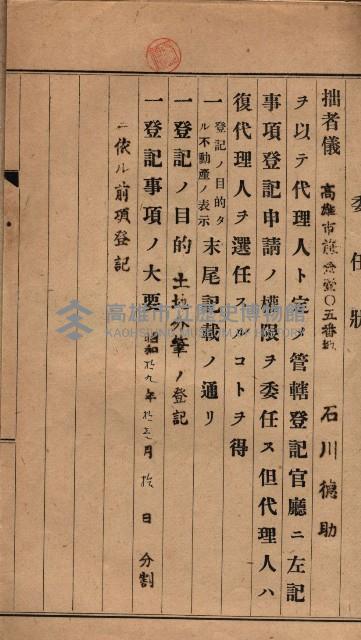 委任狀
拙者儀 高雄市 〇五番地 石川德助
ヲ以テ代理人ト定メ管轄登記官廳ニ左記
事項登記申請ノ權限ヲ委任ス但代理人ハ
復代理人ヲ選任スルコトヲ得
一 登記ノ目的タル不動產ノ表示 末尾記載ノ通リ
一 登記ノ目的 土地分筆ノ登記
一 登記事項ノ大要 昭和拾九年 月 拾 日 分割
ニ依ル前項登記
高雄市立歷史博物館
KAOHSIUNG MUSEUM OF HISTORY